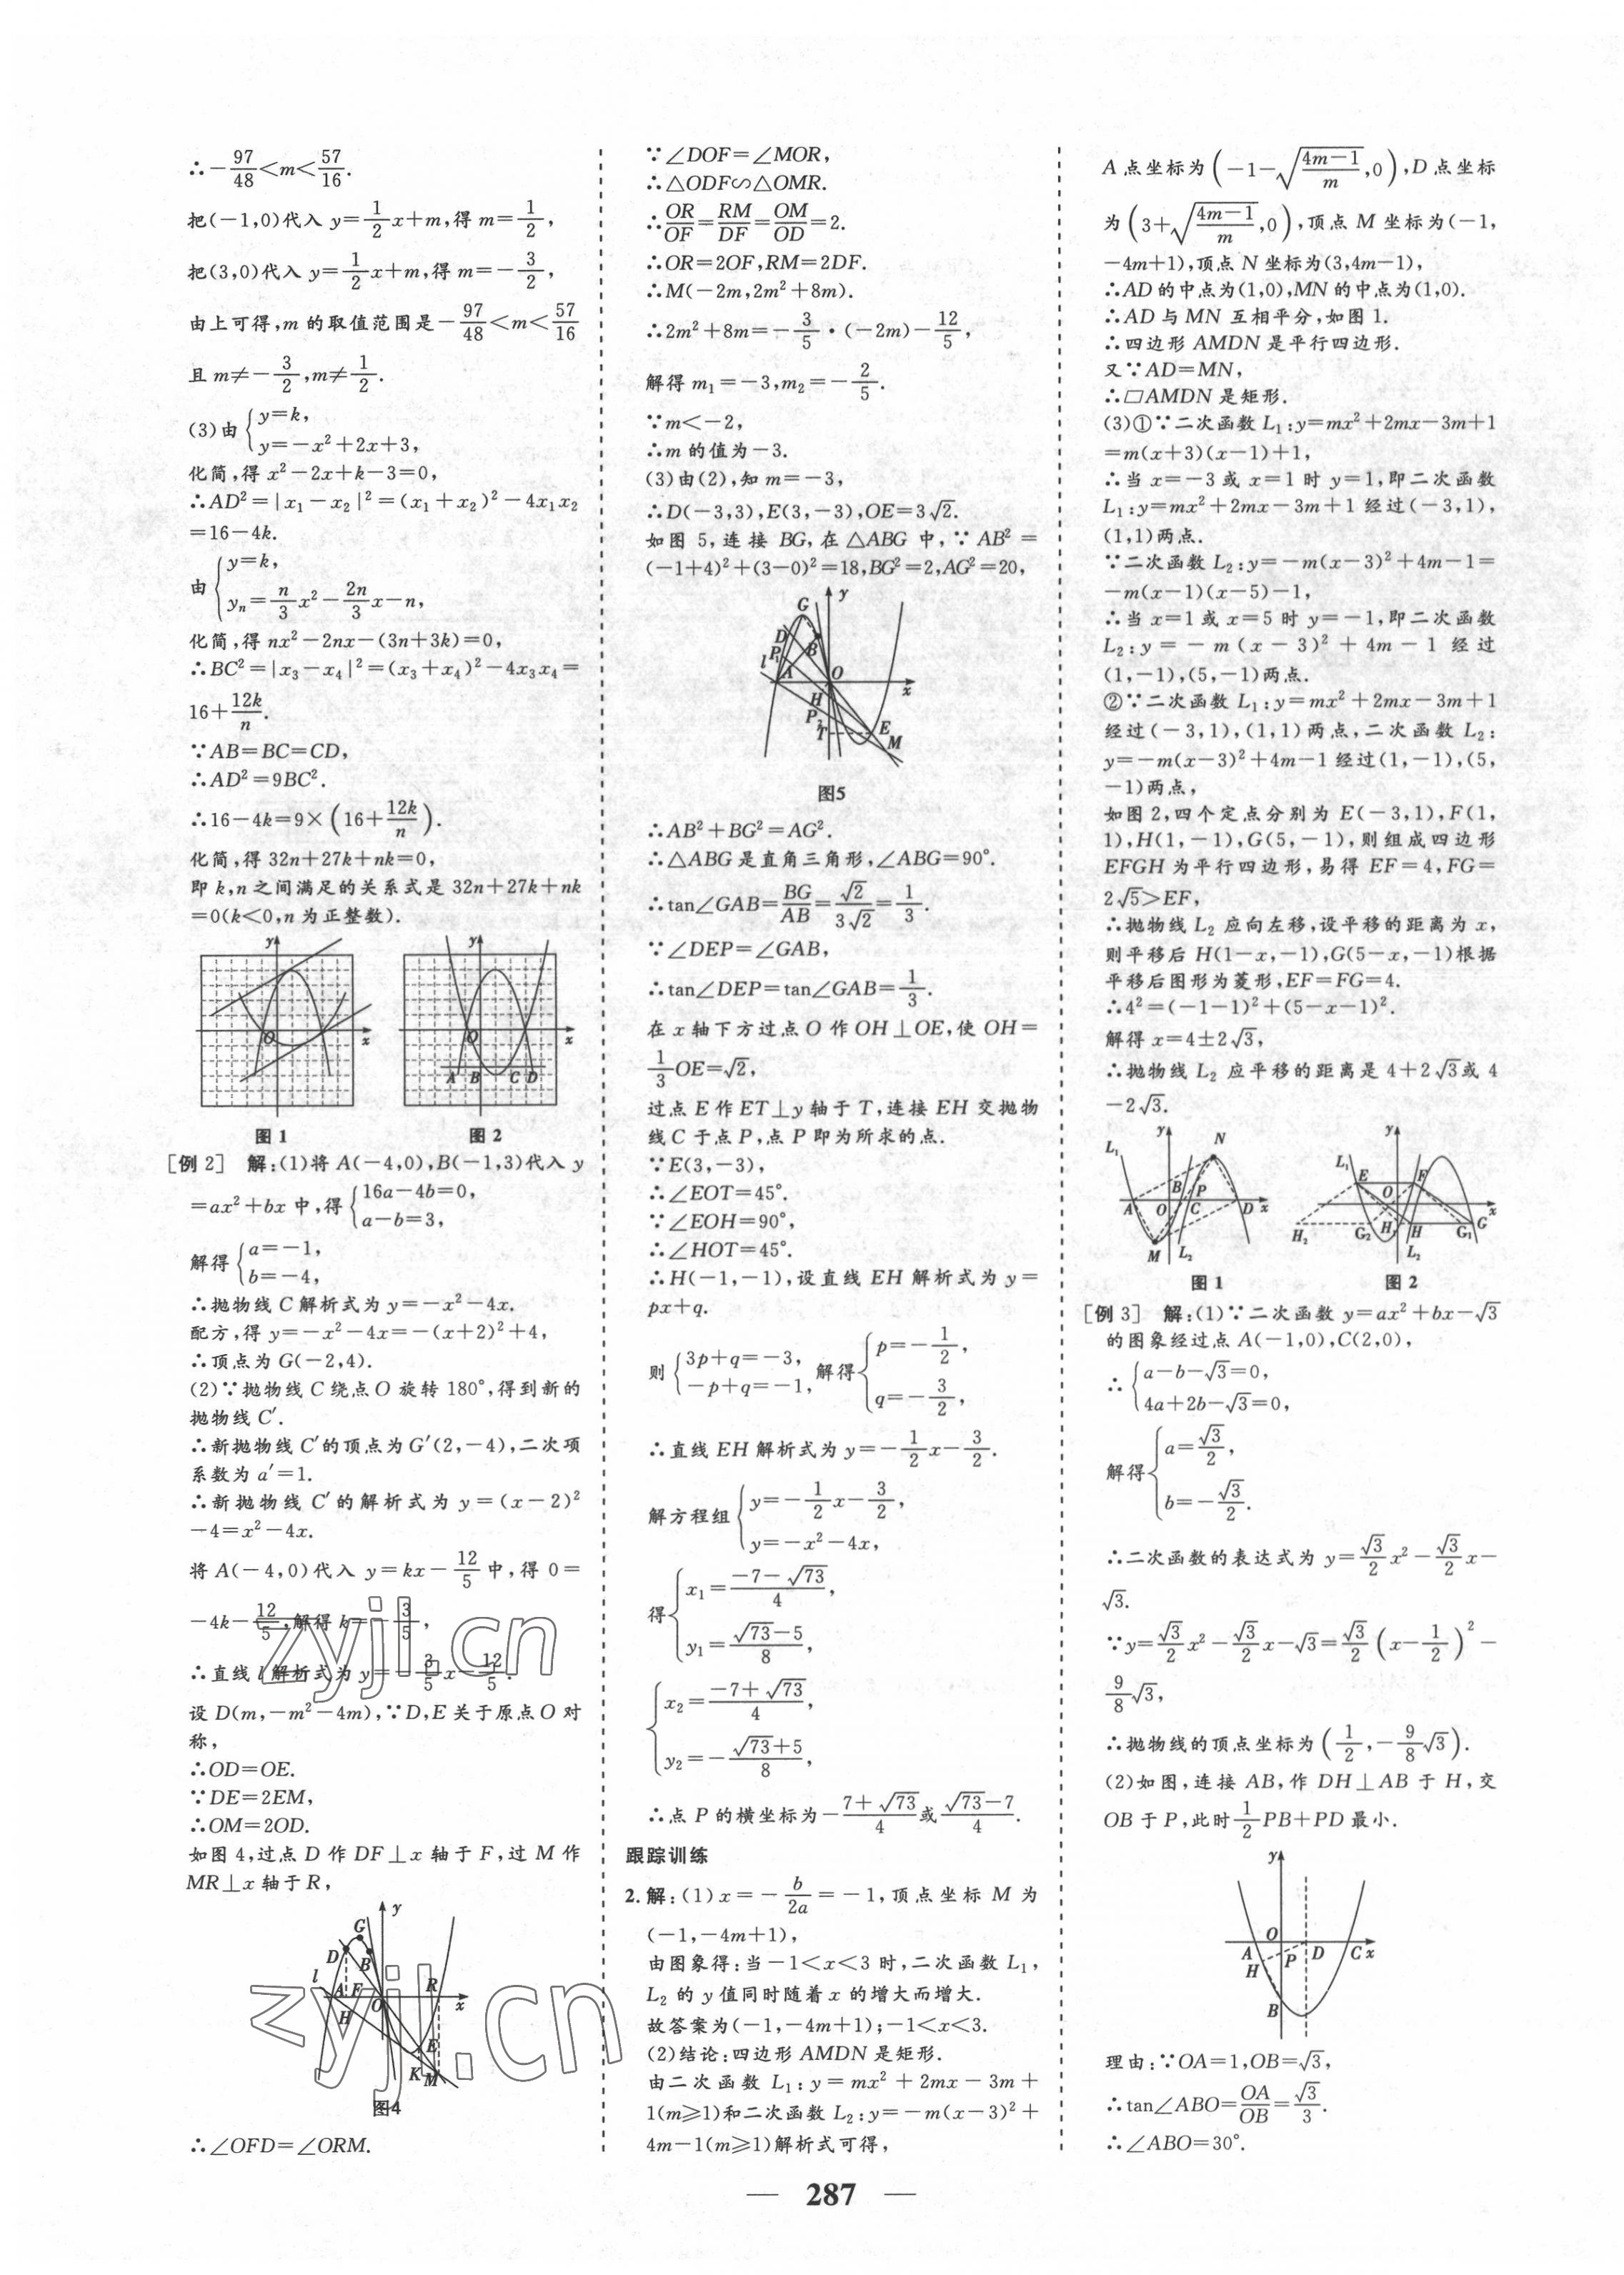 ∴-97/48<m<57/16.
把(-1,0)代入 y=1/2x+m,得 m=1/2,
把(3,0)代入 y=1/2x+m,得 m=-3/2,
由上可得,m 的取值范围是-97/48<m<57/16
且 m≠-3/2,m≠1/2.
(3)由{y=k, y=-x²+2x+3,
化简,得 x²-2x+k-3=0,
∴AD²=|x₁-x₂|²=(x₁+x₂)²-4x₁x₂
=16-4k.
由{y=k, yₙ=n/3x²-2n/3x-n,
化简,得 nx²-2nx-(3n+3k)=0,
∴BC²=|x₃-x₄|²=(x₃+x₄)²-4x₃x₄=
16+12k/n.
∵AB=BC=CD,
∴AD²=9BC².
∴16-4k=9×(16+12k/n).
化简,得 32n+27k+nk=0,
即 k,n 之间满足的关系式是 32n+27k+nk
=0(k<0,n 为正整数).
y y
O x O x
A B C D
图 1 图 2
[例 2] 解:(1)将 A(-4,0),B(-1,3)代入 y
=ax²+bx 中,得{16a-4b=0, a-b=3,
解得{a=-1, b=-4,
∴抛物线 C 解析式为 y=-x²-4x.
配方,得 y=-x²-4x=-(x+2)²+4,
∴顶点为 G(-2,4).
(2)∵抛物线 C 绕点 O 旋转 180°,得到新的
抛物线 C′.
∴新抛物线 C′的顶点为 G′(2,-4),二次项
系数为 a′=1.
∴新抛物线 C′的解析式为 y=(x-2)²
-4=x²-4x.
将 A(-4,0)代入 y=kx-12/5 中,得 0=
-4k-12/5,解得 k=-3/5,
∴直线 l 解析式为 y=-3/5x-12/5.
设 D(m,-m²-4m),∵D,E 关于原点 O 对
称,
∴OD=OE.
∵DE=2EM,
∴OM=2OD.
如图 4,过点 D 作 DF⊥x 轴于 F,过 M 作
MR⊥x 轴于 R,
y
G
D B
l A F O R x
H
E
K M
图4
∴∠OFD=∠ORM.
∵∠DOF=∠MOR,
∴△ODF∽△OMR.
∴OR/OF=RM/DF=OM/OD=2.
∴OR=2OF,RM=2DF.
∴M(-2m,2m²+8m).
∴2m²+8m=-3/5·(-2m)-12/5,
解得 m₁=-3,m₂=-2/5.
∵m<-2,
∴m 的值为-3.
(3)由(2),知 m=-3,
∴D(-3,3),E(3,-3),OE=3√2.
如图 5,连接 BG,在△ABG 中,∵AB²=
(-1+4)²+(3-0)²=18,BG²=2,AG²=20,
G y
D
P₁ B
l A O x
H
P₂ T E
M
图5
∴AB²+BG²=AG².
∴△ABG 是直角三角形,∠ABG=90°.
∴tan∠GAB=BG/AB=√2/3√2=1/3.
∵∠DEP=∠GAB,
∴tan∠DEP=tan∠GAB=1/3.
在 x 轴下方过点 O 作 OH⊥OE,使 OH=
1/3OE=√2,
过点 E 作 ET⊥y 轴于 T,连接 EH 交抛物
线 C 于点 P,点 P 即为所求的点.
∵E(3,-3),
∴∠EOT=45°.
∵∠EOH=90°,
∴∠HOT=45°.
∴H(-1,-1),设直线 EH 解析式为 y=
px+q.
则{3p+q=-3, -p+q=-1,解得{p=-1/2, q=-3/2,
∴直线 EH 解析式为 y=-1/2x-3/2.
解方程组{y=-1/2x-3/2, y=-x²-4x,
得{x₁=(-7-√73)/4, y₁=(√73-5)/8,
{x₂=(-7+√73)/4, y₂=-(√73+5)/8,
∴点 P 的横坐标为-(7+√73)/4或(√73-7)/4.
跟踪训练
2.解:(1)x=-b/2a=-1,顶点坐标 M 为
(-1,-4m+1),
由图象得:当-1<x<3 时,二次函数 L₁,
L₂ 的 y 值同时随着 x 的增大而增大.
故答案为(-1,-4m+1);-1<x<3.
(2)结论:四边形 AMDN 是矩形.
由二次函数 L₁:y=mx²+2mx-3m+
1(m≥1)和二次函数 L₂:y=-m(x-3)²+
4m-1(m≥1)解析式可得,
A 点坐标为(-1-√((4m-1)/m),0),D 点坐标
为(3+√((4m-1)/m),0),顶点 M 坐标为(-1,
-4m+1),顶点 N 坐标为(3,4m-1),
∴AD 的中点为(1,0),MN 的中点为(1,0).
∴AD 与 MN 互相平分,如图 1.
∴四边形 AMDN 是平行四边形.
又∵AD=MN,
∴▱AMDN 是矩形.
(3)①∵二次函数 L₁:y=mx²+2mx-3m+1
=m(x+3)(x-1)+1,
∴当 x=-3 或 x=1 时 y=1,即二次函数
L₁:y=mx²+2mx-3m+1 经过(-3,1),
(1,1)两点.
∵二次函数 L₂:y=-m(x-3)²+4m-1=
-m(x-1)(x-5)-1,
∴当 x=1 或 x=5 时 y=-1,即二次函数
L₂:y=-m(x-3)²+4m-1 经过
(1,-1),(5,-1)两点.
②∵二次函数 L₁:y=mx²+2mx-3m+1
经过(-3,1),(1,1)两点,二次函数 L₂:
y=-m(x-3)²+4m-1 经过(1,-1),(5,
-1)两点,
如图 2,四个定点分别为 E(-3,1),F(1,
1),H(1,-1),G(5,-1),则组成四边形
EFGH 为平行四边形,易得 EF=4,FG=
2√5>EF,
∴抛物线 L₂ 应向左移,设平移的距离为 x,
则平移后 H(1-x,-1),G(5-x,-1)根据
平移后图形为菱形,EF=FG=4.
∴4²=(-1-1)²+(5-x-1)².
解得 x=4±2√3,
∴抛物线 L₂ 应平移的距离是 4+2√3或 4
-2√3.
L₁ y N
B P
A O C D x
M L₂
图 1
L₁ y
E F
O x
H₂ G₂ H₁ H G₁ G
L₂
图 2
[例 3] 解:(1)∵二次函数 y=ax²+bx-√3
的图象经过点 A(-1,0),C(2,0),
∴{a-b-√3=0, 4a+2b-√3=0,
解得{a=√3/2, b=-√3/2.
∴二次函数的表达式为 y=√3/2x²-√3/2x-
√3.
∵y=√3/2x²-√3/2x-√3=√3/2(x-1/2)²-
9/8√3,
∴抛物线的顶点坐标为(1/2,-9/8√3).
(2)如图,连接 AB,作 DH⊥AB 于 H,交
OB 于 P,此时1/2PB+PD 最小.
y
O
A P D C x
H
B
理由:∵OA=1,OB=√3,
∴tan∠ABO=OA/OB=√3/3.
∴∠ABO=30°.
— 287 —
zyjl.cn
zyjl.cn